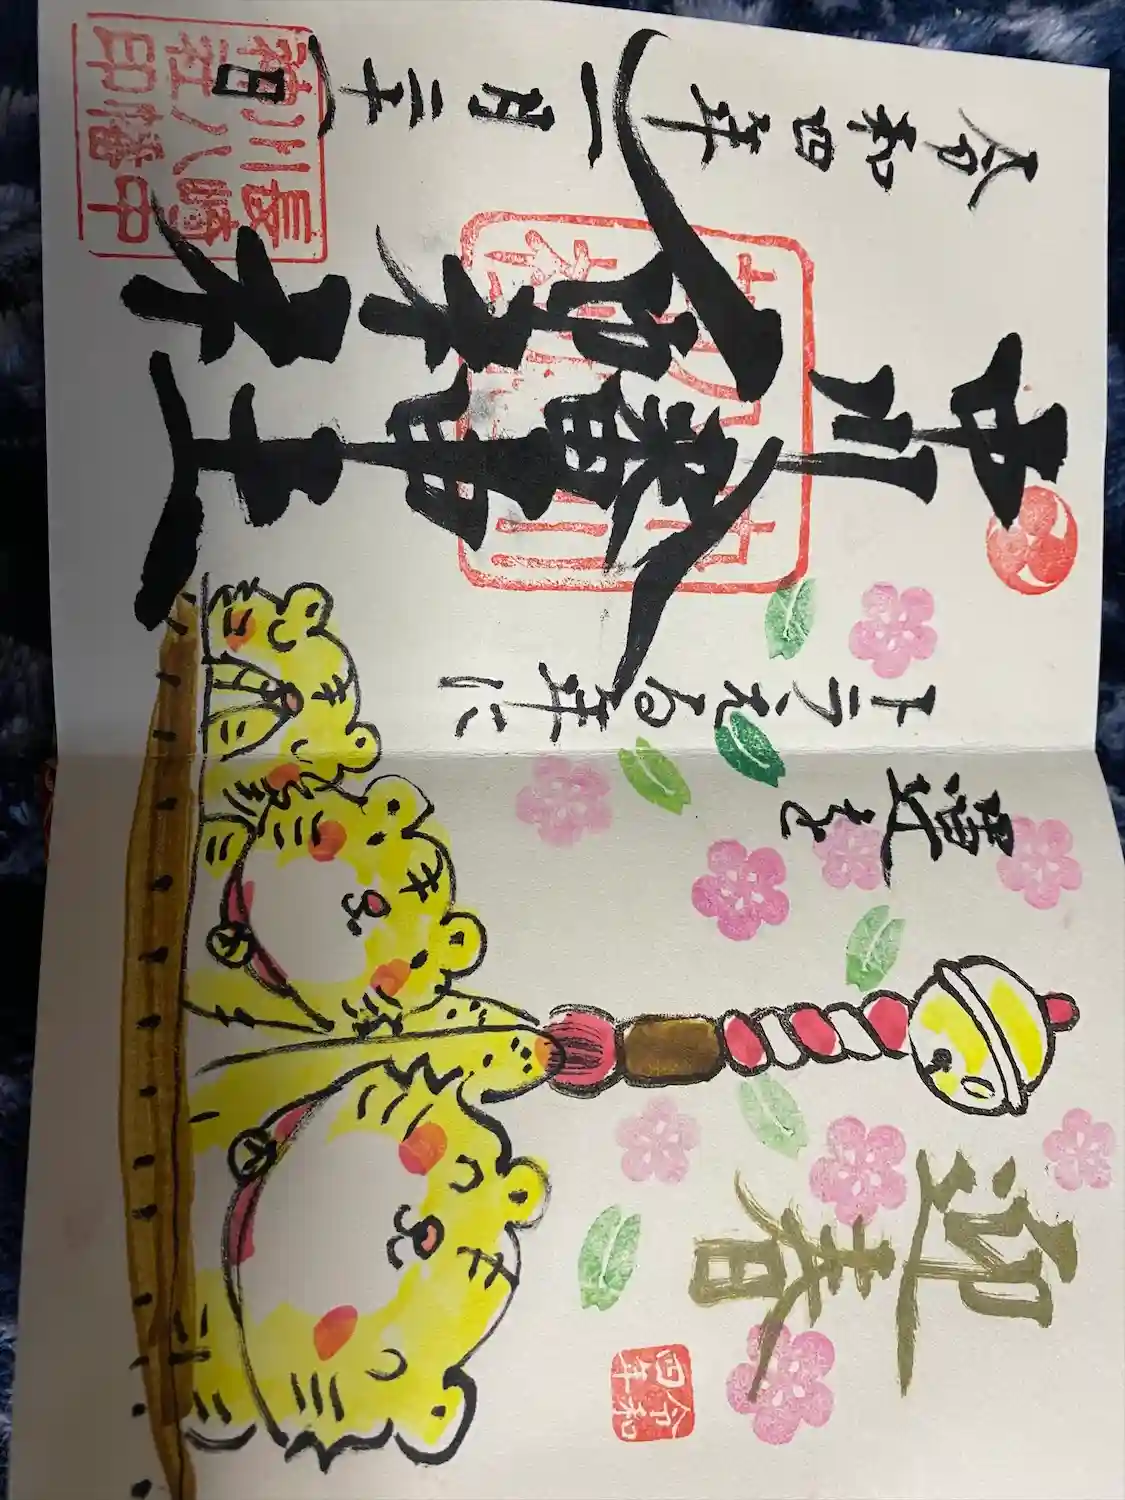 迎春
令和四年
運を
トラえる年に
中川八幡神社
令和四年一月二十一日
長崎中
川八幡
神社印